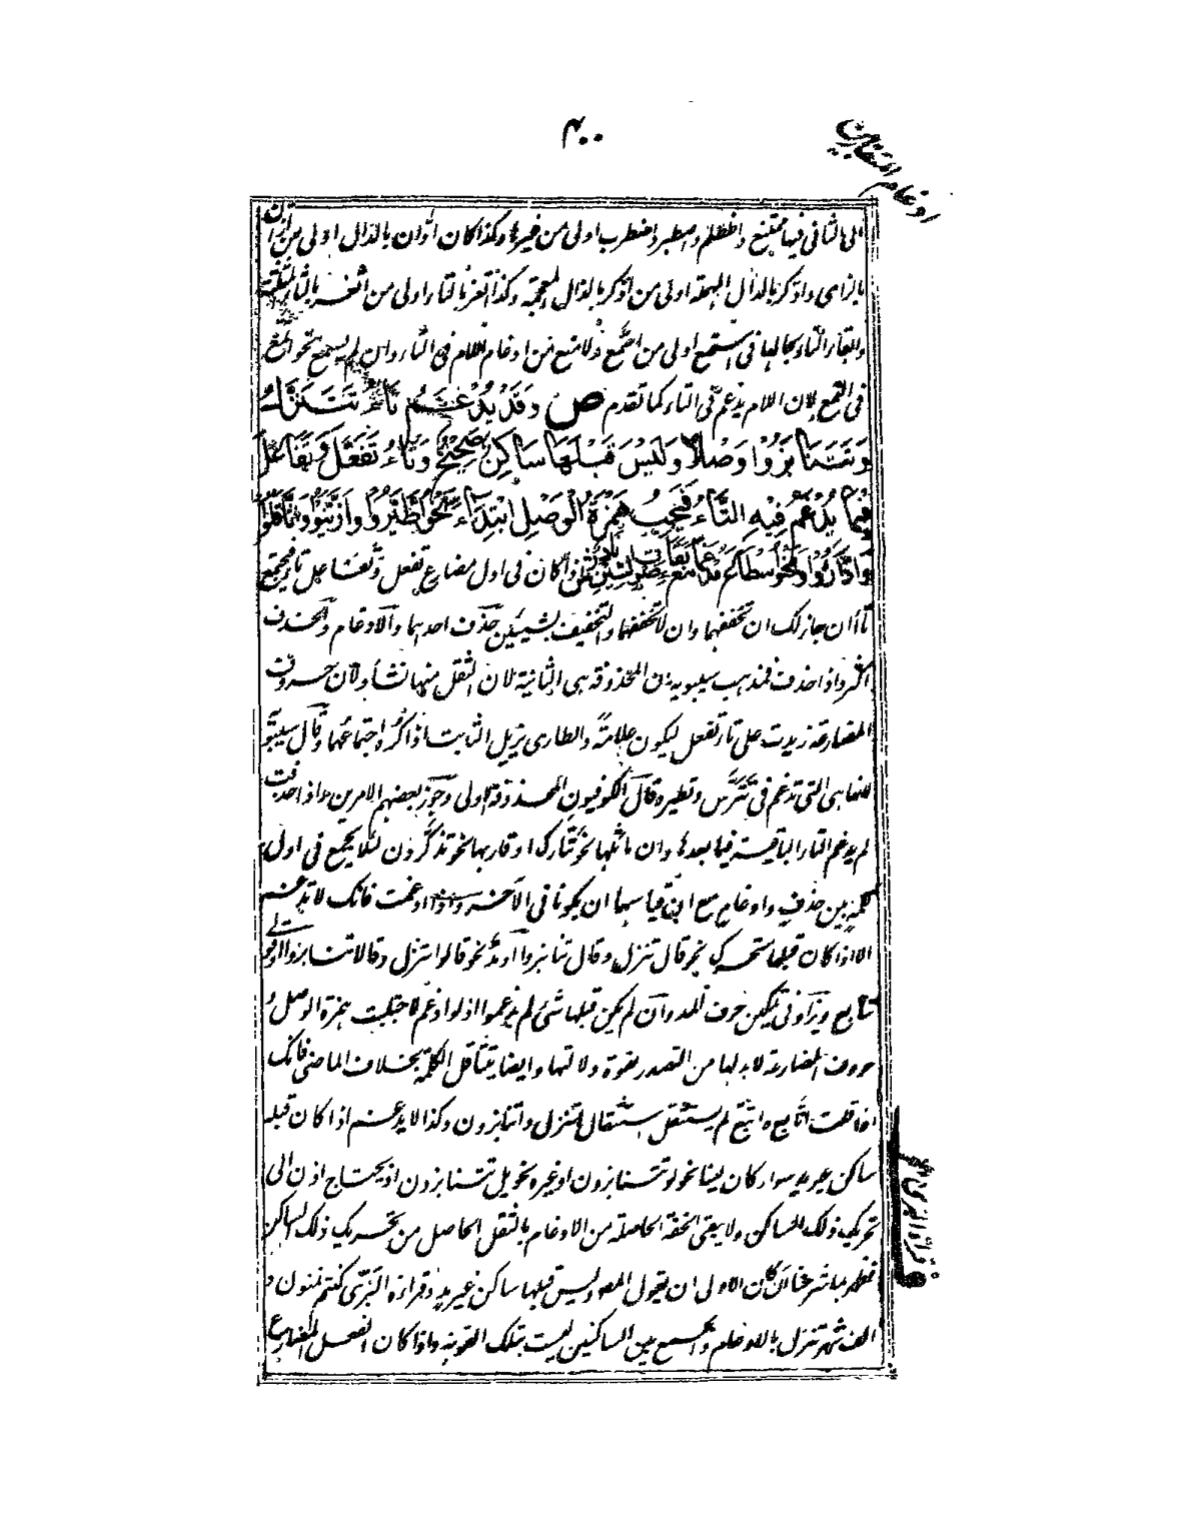 ۴۰۰
ادغام المتقاربين
الى الثانى فيها ممتنع واظطلم واصطبر واضطرب اولى من غيرها وكذا كان ادّان بالدال اولى من ازان
بالزاى واذكر بالدال المهملة اولى من اذكر بالذال المعجمة وكذا اتغر بالتاء اولى من اثغر بالثاء المثلثة
وابقاء التاء بحالها فى استمع اولى من اسّمع ولا منع من ادغام اللام فى التاء وان لم يسمع نحو
فى التمع لان اللام يدغم فى التاء كما تقدم ص وَقَدْ يُدْغَمُ تَاءُ تَتَنَزَّلُ
وَتَتَنَابَزُوْا وَصْلًا وَلَيْسَ قَبْلَهَا سَاكِنٌ صَحِيْحٌ وَتَاءُ تَفَعَّلَ وَتَفَاعَلَ
فِيْمَا يُدْغَمُ فِيْهِ التَّاءُ فَتُجْلَبُ هَمْزَةُ الْوَصْلِ ابْتِدَاءً نَحْوُ اِطَّيَّرُوْا وَازَّيَّنُوْا وَاثَّاقَلُوْا
وَادَّارَأُوْا وَنَحْوُ اسْطَاعَ مُدْغَمًا مَعَ بَقَاءِ صَوْتِ السِّيْنِ نَادِرٌ ش اذا كان فى اول مضارع تفعل وتفاعل تاء فيجتمع
تاآن جاز لك ان تخففهما وان لا تخففهما والتخفيف بشيئين حذف احدهما والادغام والحذف
اكثر واذا حذفت فمذهب سيبويه ان المحذوفة هى الثانية لان الثقل منها نشأ ولان حروف
المضارعة زيدت على تاء تفعل ليكون علامة والطارى يزيل الثابت اذا كره اجتماعهما وقال سيبويه
لانها هى التى تدغم فى تترس وتطيره وقال الكوفيون المحذوفة الاولى وجوز بعضهم الامرين واذا حذفت
لم يدغم التاء الباقية فيما بعدها وان ماثلها نحو تتارك او قاربها نحو تذكرون لئلا يجمع فى اول
كلمة بين حذف وادغام مع ان قياسهما ان يكونا فى الآخر واذا ادغمت فانك لا تدغم
الا اذا كان قبلها متحرك نحو قال تنزل وقال تنابزوا او مد نحو قالوا تنزل وقالا تنابزوا
تتابع ويزاد فى تمكين حرف المد وان لم يكن قبلها شئ لم يدغموا اذ لو ادغم لاجتلبت همزة الوصل و
حروف المضارعة لا بد لها من التصدر لقوة دلالتها وايضا يتثاقل الكلمة بخلاف الماضى فانك
اذا قلت اتّابع واتّبع لم يستثقل استثقال اتنزل واتنابزون وكذا لا يدغم اذا كان قبله
ساكن غير مد سواء كان لينا نحو لو تتنابزون او غيره نحو هل تتنابزون اذ يحتاج اذن الى
تحريك ذلك الساكن ولا يبقى الخفة الحاصلة من الادغام بالثقل الحاصل من تحريك ذلك الساكن
فظهر بما شرحنا ان كان الاولى ان يقول المصنف وليس قبلها ساكن غير مد وقراءة البزى كنتم تمنون و
الف شهر تنزل بالادغام والجمع بين الساكنين ليست بتلك القوية واذا كان الفعل المضارع